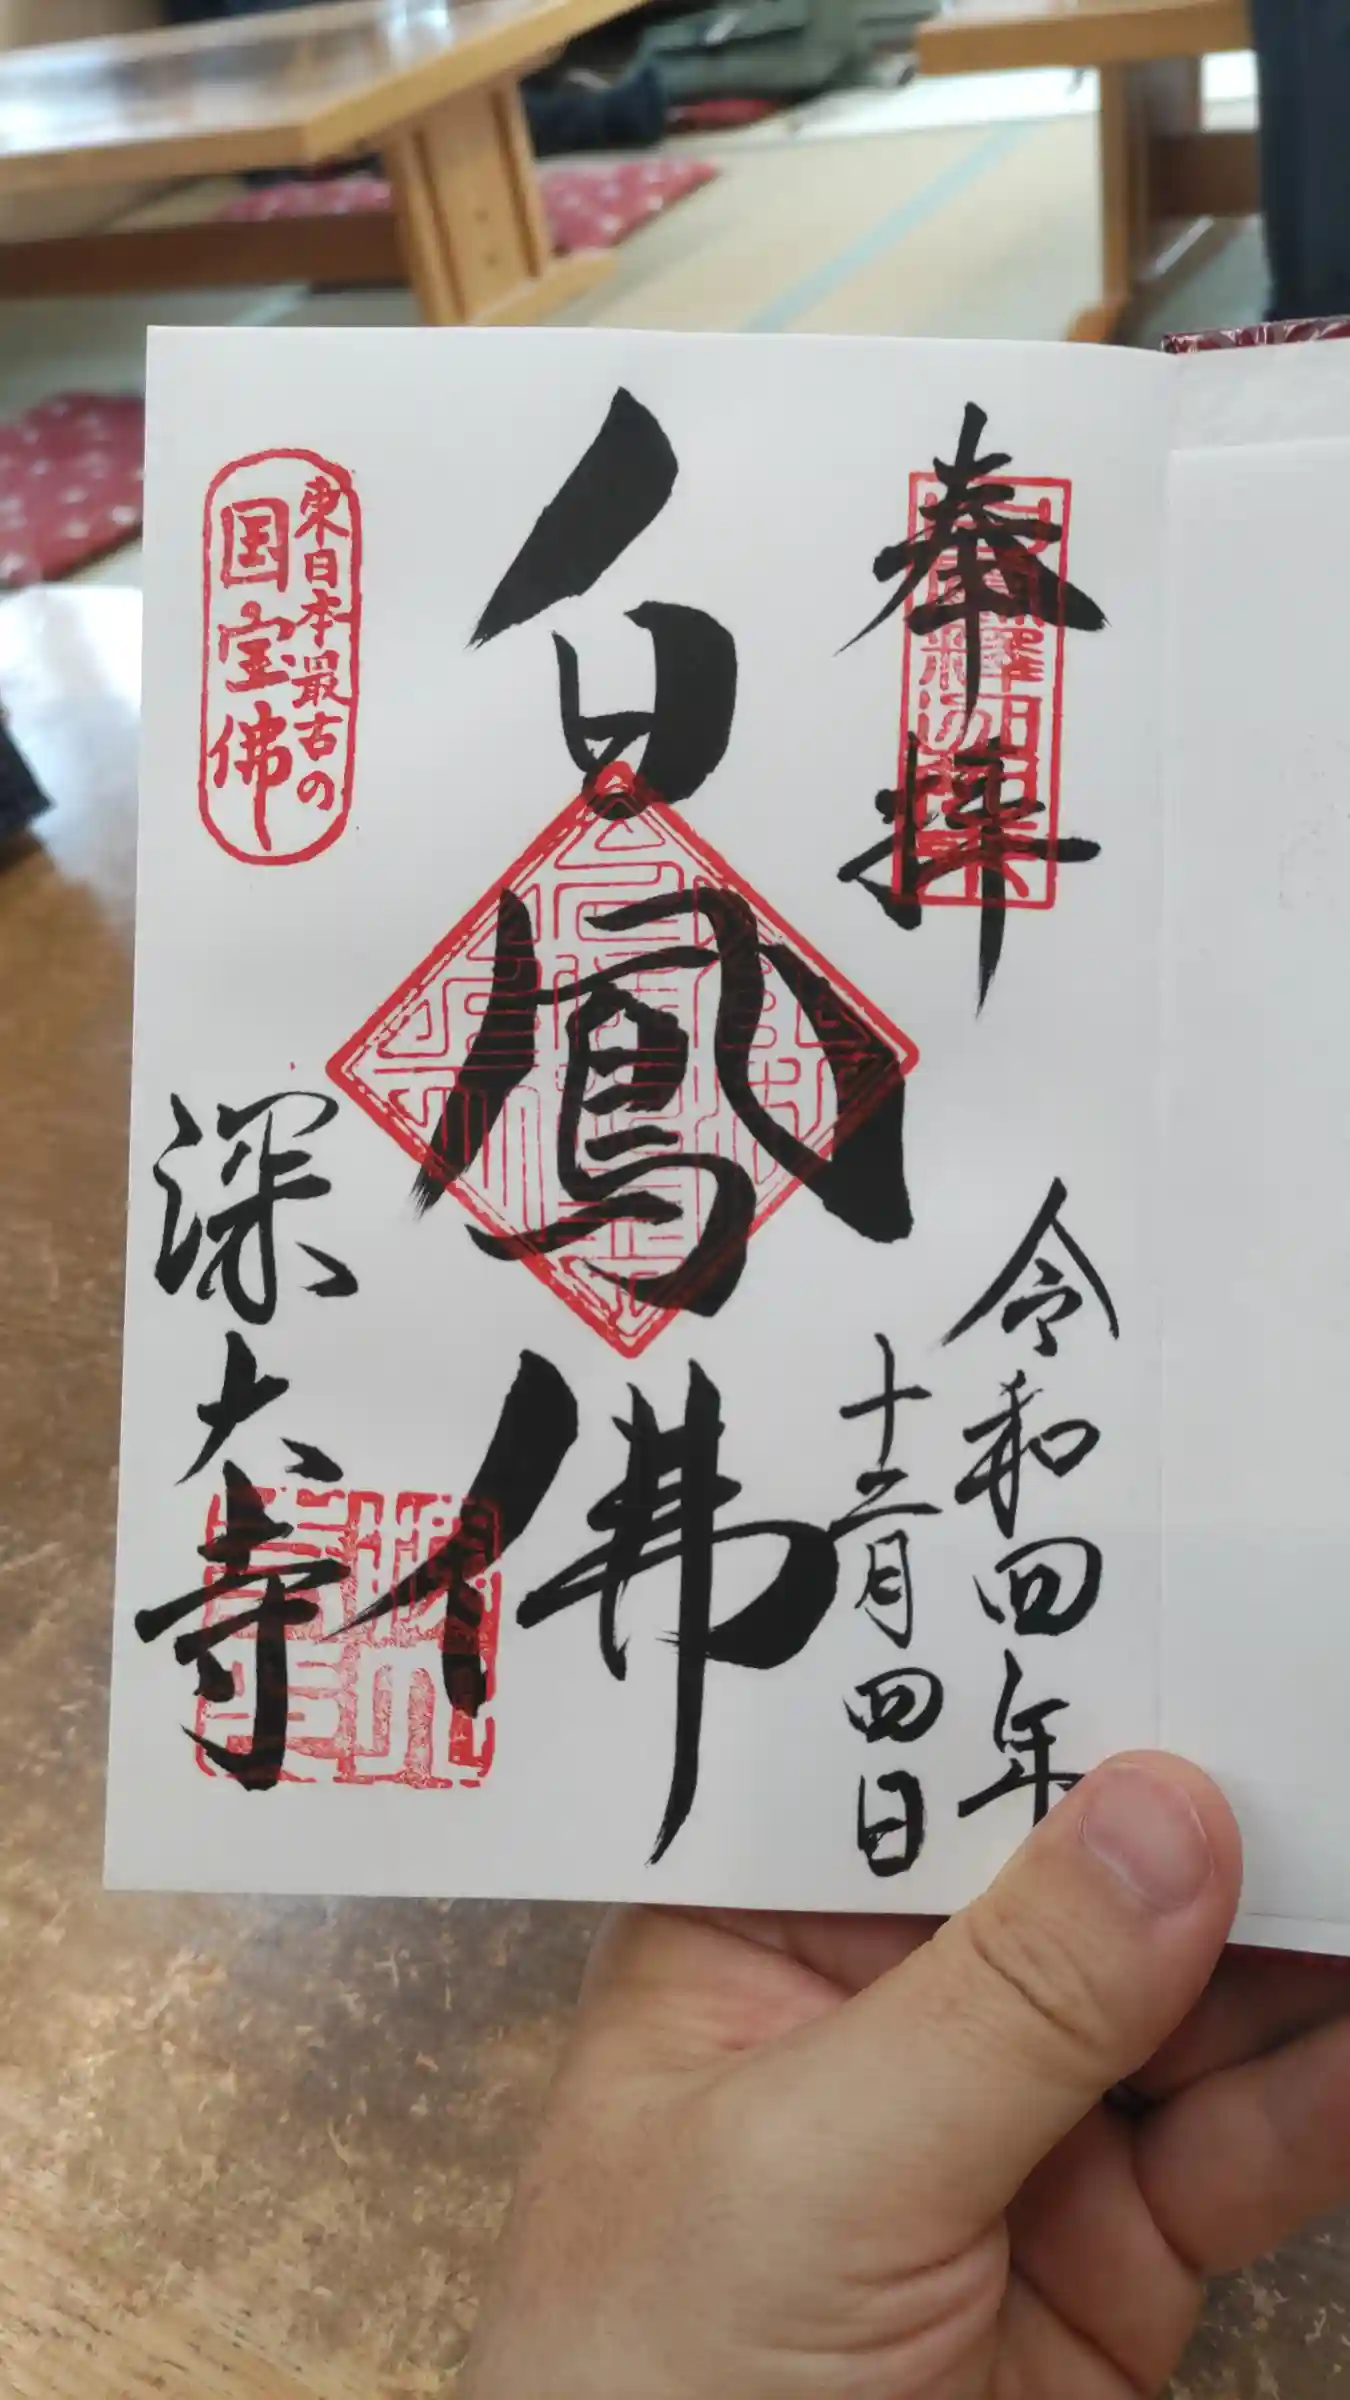 奉拝
令和四年
十二月四日
白鳳佛
東日本最古の
国宝佛
深大寺